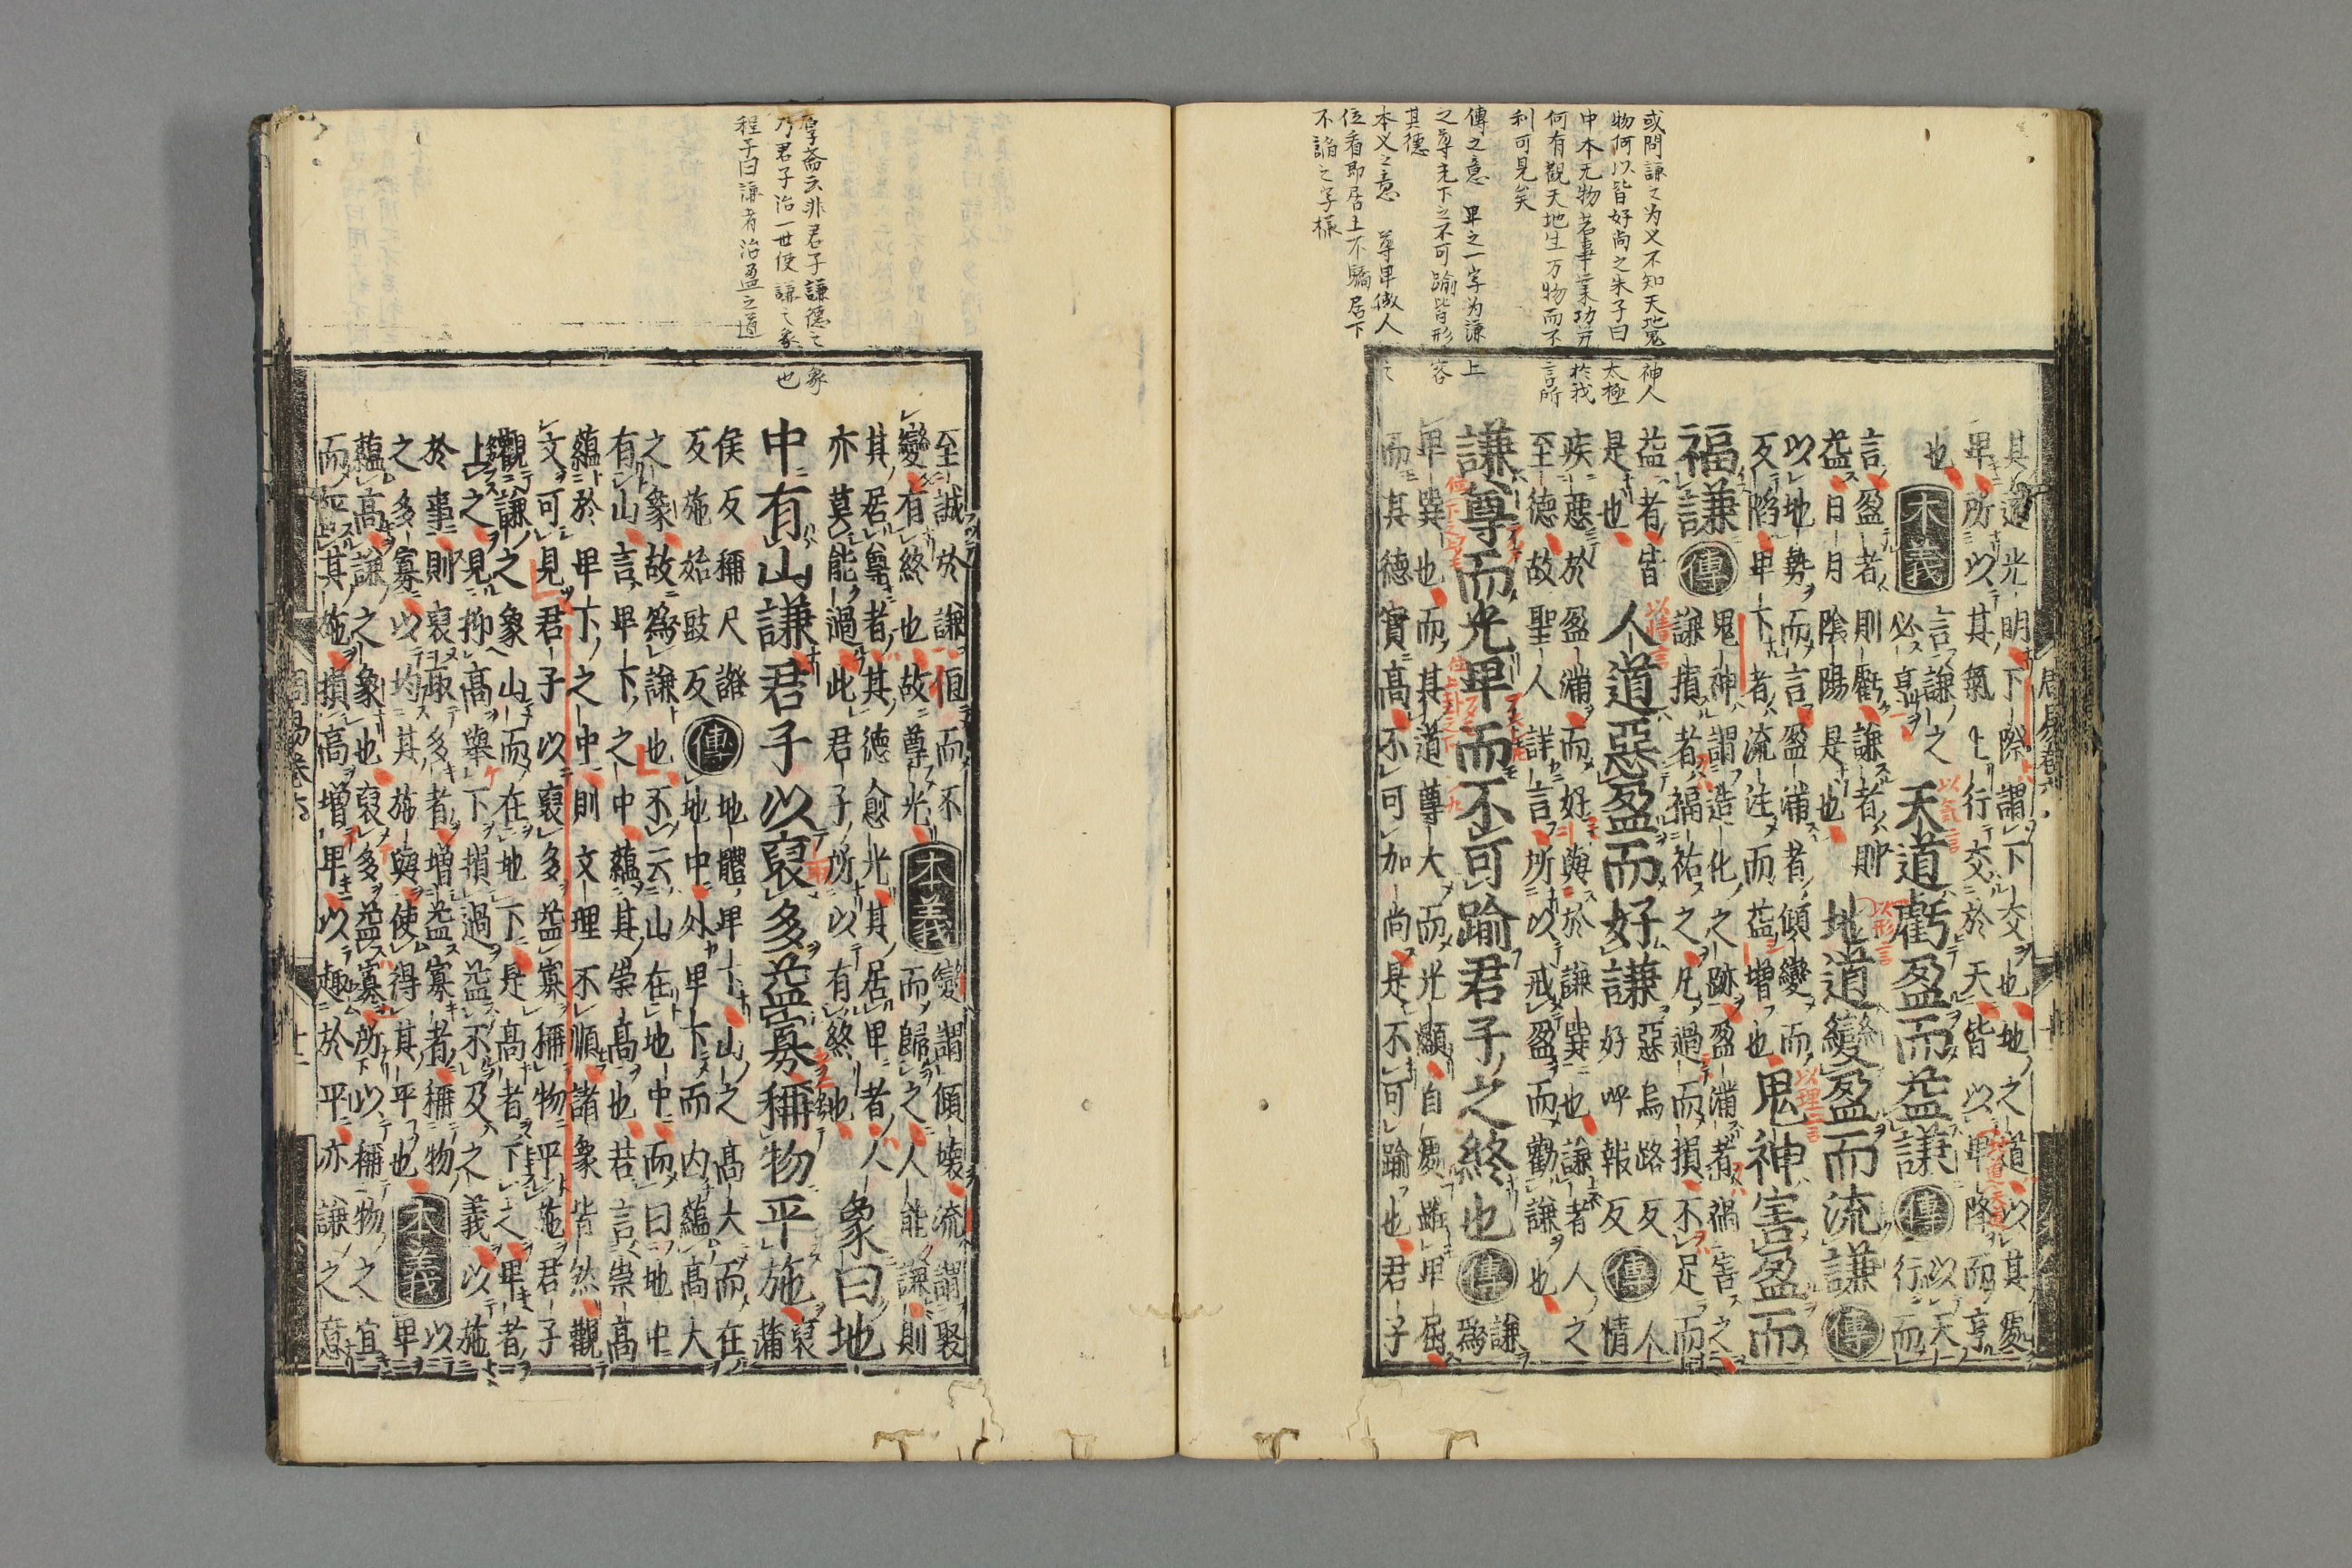 或問謙之为义不知天地鬼神人
物何以皆好尚之朱子曰太極
中本无物若事業功労於我
何有觀天地生万物而不言所
利可見矣
傳之意 卑之一字为谦上
之尊先下之不可踰皆形容
其德
本义之意 尊卑做人
位看即居上不驕居下
不諂之字樣
其道光明下際謂下交也地之道以其處
卑所以其氣上行交於天皆以卑降而亨
也 本義 言謙之必亨 天道虧盈而益謙 傳 以天行而
言盈者則虧謙者則
益日月陰陽是也 地道變盈而流謙 傳
以地勢而言盈滿者傾變而
反陷卑下者流注而益增也 鬼神害盈而
福謙 傳 鬼神謂造化之跡盈滿者禍害之
謙損者福祐之凡過而損不足而
益者皆
是也 人道惡盈而好謙 惡烏路反好呼報反 傳 人情
疾惡於盈滿而好與於謙巽也謙者人之
至德故聖人詳言所以戒盈而勸謙也
謙尊而光卑而不可踰君子之終也 傳 謙爲
卑巽也而其道尊大而光顯自處雖卑屈
而其德實高不可加尚是不可踰也君子
以氣言
以形言
以理言
以情言
周易卷六
厚斎云非君子謙德之象
乃君子治一世使謙之象也
程子曰謙者治盈之道
至誠於謙恒而不
變有終也故尊光 本義 變謂傾壞流謂聚
而歸之人能謙則
其居尊者其德愈光其居卑者人
亦莫能過此君子所以有終也 象曰地
中有山謙君子以裒多益寡稱物平施 裒蒲
侯反稱尺證
反施始豉反 傳 地體卑下山之高大而在
地中外卑下而内蘊高大
之象故爲謙也不云山在地中而曰地中
有山言卑下之中蘊其崇高也若言崇高
蘊於卑下之中則文理不順諸象皆然觀
文可見君子以裒多益寡稱物平施君子
觀謙之象山而在地下是高者下之卑者
上之見抑高舉下損過益不及之義以施
於事則裒取多者增益寡者稱物
之多寡以均其施與使得其平也 本義 以卑
蘊高謙之象也裒多益寡所以稱物之宜
而平其施損高增卑以趣於平亦謙之意
周易卷六 十二